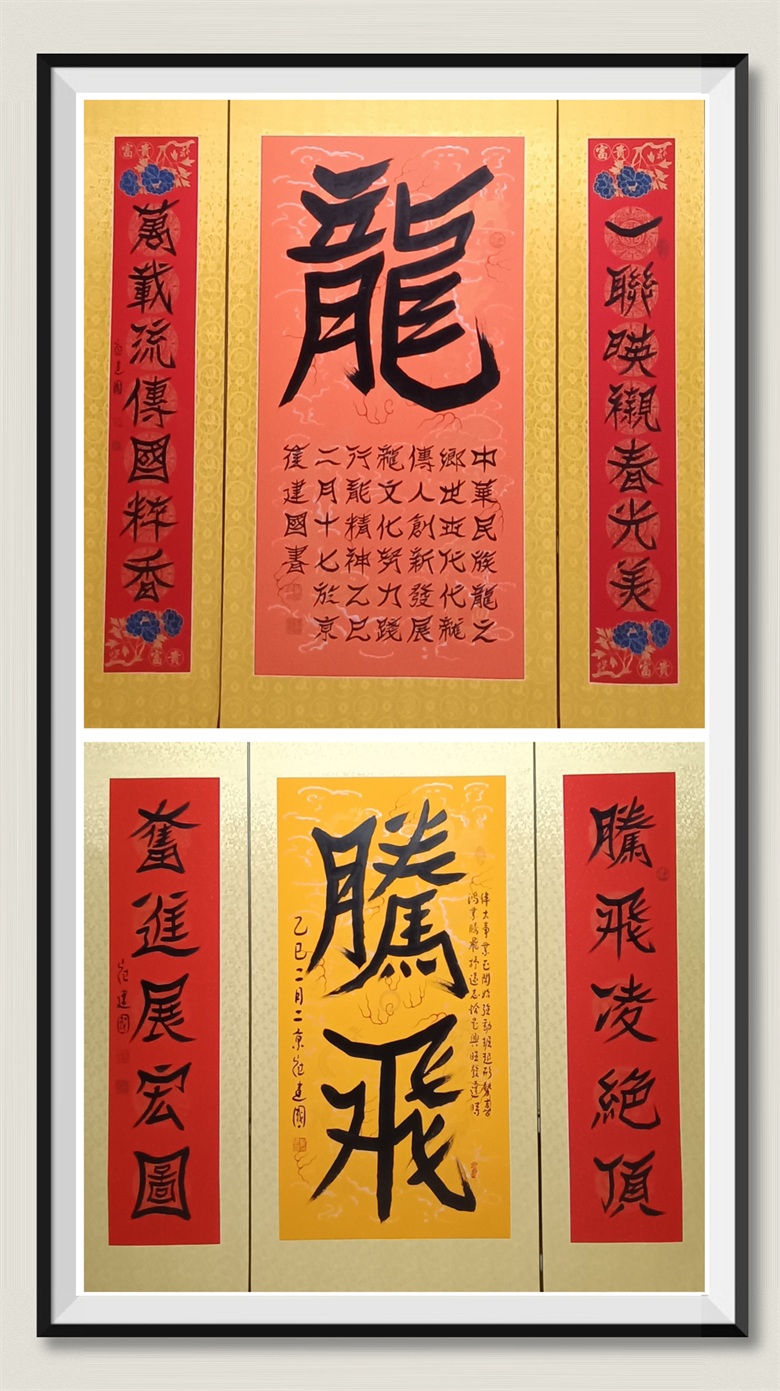 富貴
一聯暎襯春光美
富貴
龍
中華民族龍之
鄉世世代代龍
傳人創新發展
龍文化努力踐
行龍精神乙巳
二月十七於京
崔建國書
富貴
萬載流傳國粹香
富貴
崔建國
騰飛凌絕頂
騰飛
偉大事業正開
乙巳二月二京崔建國
奮進展宏圖
崔建國